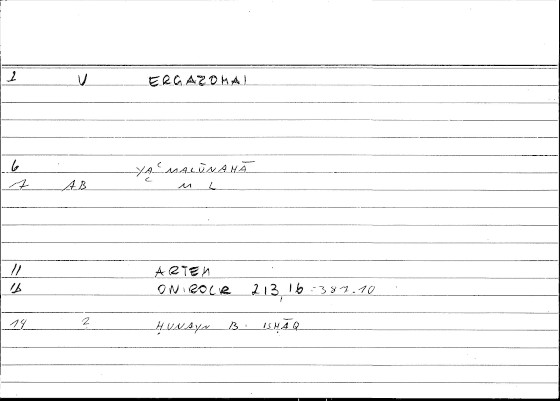 1 V ERGAZOMAI
6 YAʿMALŪNAHĀ
7 AB ʿ M L
11 ARTEM
ONIROCR 213,16 = 381.10
14 2 ḤUNAYN B. ISḤĀQ